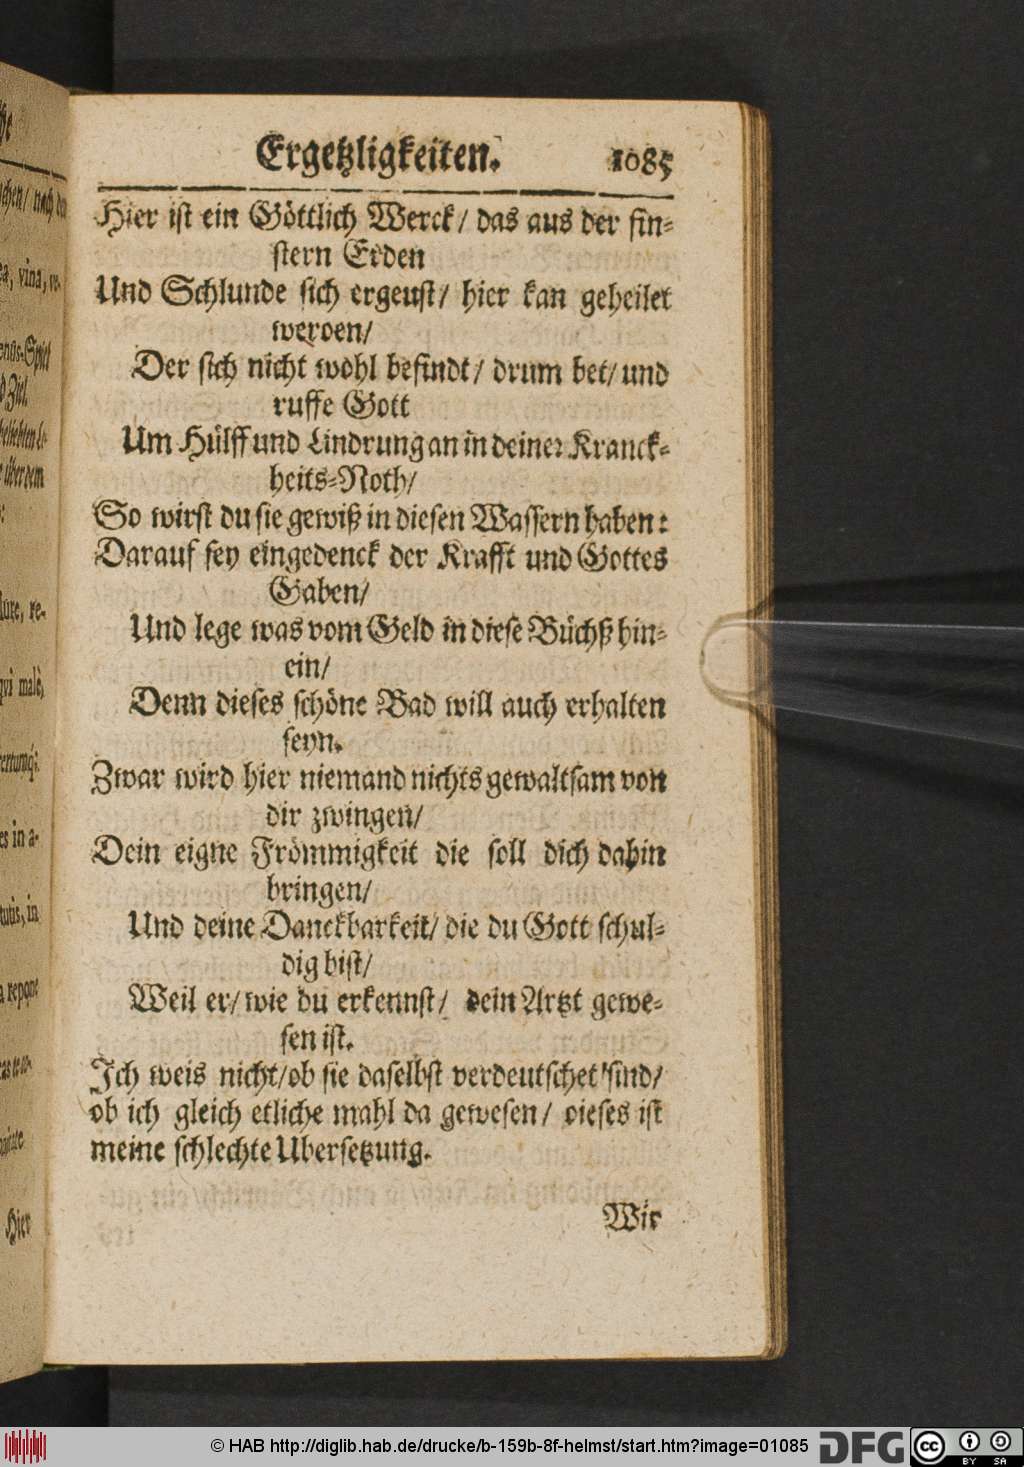 Ergetzligkeiten. 1085
Hier ist ein Göttlich Werck/ das aus der fin-
stern Erden
Und Schlunde sich ergeust/ hier kan geheilet
werden/
Der sich nicht wohl befindt/ drum bet/ und
ruffe Gott
Um Hülff und Lindrung an in deiner Kranck-
heits-Noth/
So wirst du sie gewiß in diesen Wassern haben:
Darauf sey eingedenck der Krafft und Gottes
Gaben/
Und lege was vom Geld in diese Büchß hin-
ein/
Denn dieses schöne Bad will auch erhalten
seyn.
Zwar wird hier niemand nichts gewaltsam von
dir zwingen/
Dein eigne Frömmigkeit die soll dich dahin
bringen/
Und deine Danckbarkeit/ die du Gott schul-
dig bist/
Weil er/ wie du erkennst/ dein Artzt gewe-
sen ist.
Ich weis nicht/ ob sie daselbst verdeutschet sind/
ob ich gleich etliche mahl da gewesen/ dieses ist
meine schlechte Ubersetzung.
Wir
vina,
Spiel
Ziel.
über dem
re-
male,
es in a-
in
repone
Hier
© HAB http://diglib.hab.de/drucke/b-159b-8f-helmst/start.htm?image=01085 DFG cc BY SA